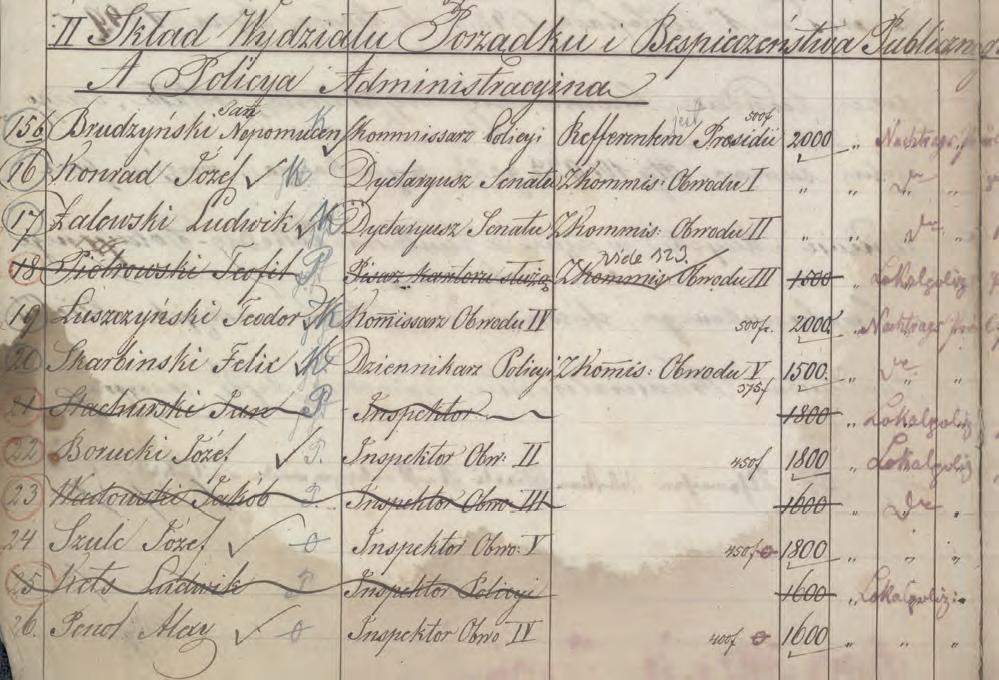 II Skład Wydziału Porzadku i Bespieczeństwa Publiczneg
A Policya Administracyjna
156 Brudzyński Jan Nepomucen K Kommissarz Policyi jest Refferentem Presidii 500f 2000 „ Nachtrags
16 Konrad Józef K Dyetaryusz Senatu Z Kommis: Obwodu I „ „ do „
17 Żalewski Ludwik K Dyetaryusz Senatu Z Kommis: Obwodu II „ „ do „
18 Piotrowski Teofil P Pisarz kantoru służą Z Kommis vide 123. Obwodu III 1500 „ Lokalpoliz
19 Łuszczyński Teodor K Komissarz Obwodu IV 500fr. 2000 „ Nachtrags
20 Skarbinski Felix K Dziennikarz Policyi Z Komis: Obwodu V 375f 1500. „ do „
21 Stachurski Jan P Inspektor 1800 „ Lokalpoliz
22 Borucki Józef P. Inspektor Obw: II 450f 1800 „ Lokalpoliz
23 Wadowski Jakób P. Inspektor Obwo III 1600 „ do „
24 Szulc Józef o Inspektor Obwo: V 450f o 1800 „ „ „
25 Ludwik P Inspektor Policyi 1600 „ Lokalpoliz:
26. Penot Alexy o Inspektor Obwo IV 400f o 1600 „ „ „